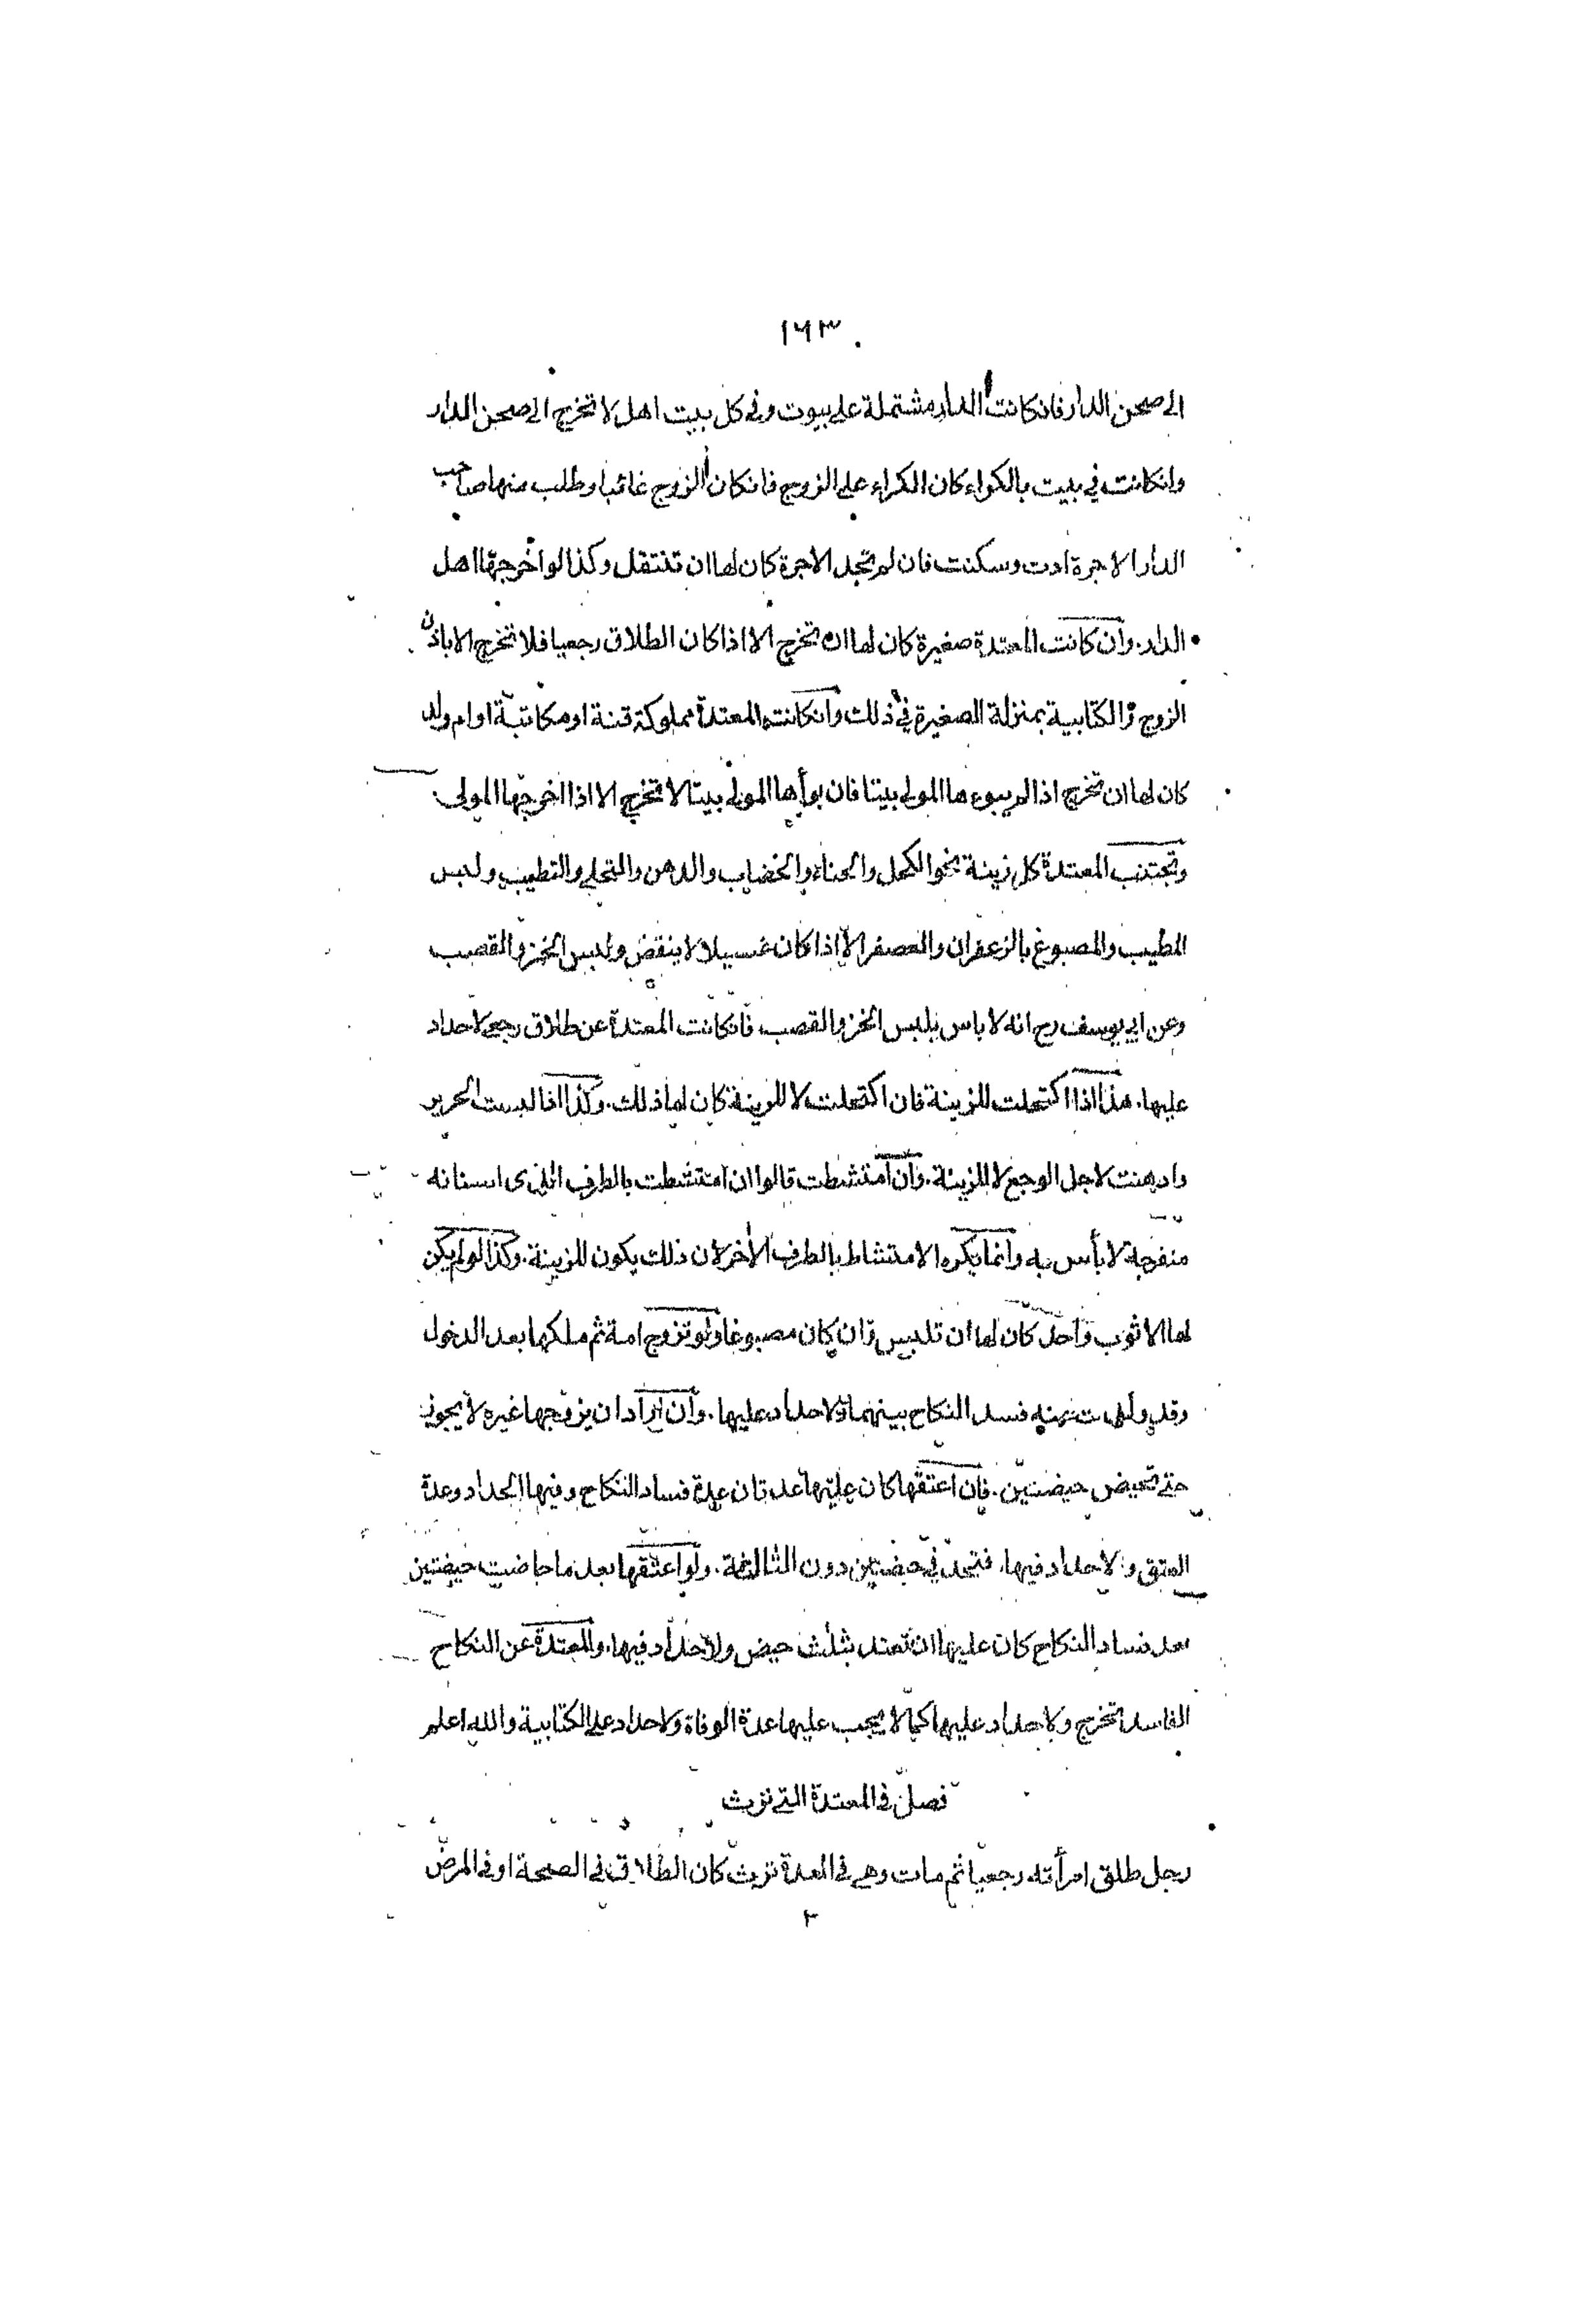 ١٦٣
الى صحن الدار فان كانت الدار مشتملة على بيوت وفي كل بيت اهل لا تخرج الى صحن الدار
وان كانت في بيت بالكراء كان الكراء على الزوج فان كان الزوج غائبا وطلب منها صاحب
الدار الاجرة ادت وسكنت فان لم تجد الاجرة كان لها ان تنتقل وكذا لو اخرجها اهل
الدار. وان كانت المعتدة صغيرة كان لها ان تخرج الا اذا كان الطلاق رجعيا فلا تخرج الا باذن
الزوج والكتابية بمنزلة الصغيرة في ذلك وان كانت المعتدة مملوكة قنة او مكاتبة او ام ولد
كان لها ان تخرج اذا لم يبوءها المولى بيتا فان بوأها المولى بيتا لا تخرج الا اذا اخرجها المولى.
وتجتنب المعتدة كل زينة نحو الكحل والحناء والخضاب والدهن والتحلي والتطيب ولبس
المطيب والمصبوغ بالزعفران والعصفر الا اذا كان غسيلا لا ينفض ولبس الخز والقصب
وعن ابي يوسف رح انه لا باس بلبس الخز والقصب. فان كانت المعتدة عن طلاق رجعي لا حداد
عليها. هذا اذا اكتحلت للزينة فان اكتحلت لا للزينة كان لها ذلك. وكذا اذا لبست الحرير
وادهنت لاجل الوجع لا للزينة. وان امتشطت قالوا ان امتشطت بالطرف الذي اسنانه
منفرجة لا بأس به وانما يكره الامتشاط بالطرف الآخر لان ذلك يكون للزينة. وكذا لو لم يكن
لها الا ثوب واحد كان لها ان تلبس وان كان مصبوغا ولو تزوج امة ثم ملكها بعد الدخول
وقد ولدت منه فسد النكاح بينهما ولا حداد عليها. وان اراد ان يزوجها غيره لا يجوز
حتى تحيض حيضتين. فان اعتقها كان عليها عدتان عدة فساد النكاح وفيها الحداد وعدة
العتق ولا حداد فيها. فتحد في حيضتين دون الثالثة. ولو اعتقها بعد ما حاضت حيضتين
بعد فساد النكاح كان عليها ان تعتد بثلث حيض ولا حداد فيها. والمعتدة عن النكاح
الفاسد تخرج ولا حداد عليها كما لا يجب عليها عدة الوفاة ولا حداد على الكتابية والله اعلم
فصل في المعتدة التي ترث
رجل طلق امرأته رجعيا ثم مات وهي في العدة ترث كان الطلاق في الصحة او في المرض
٣